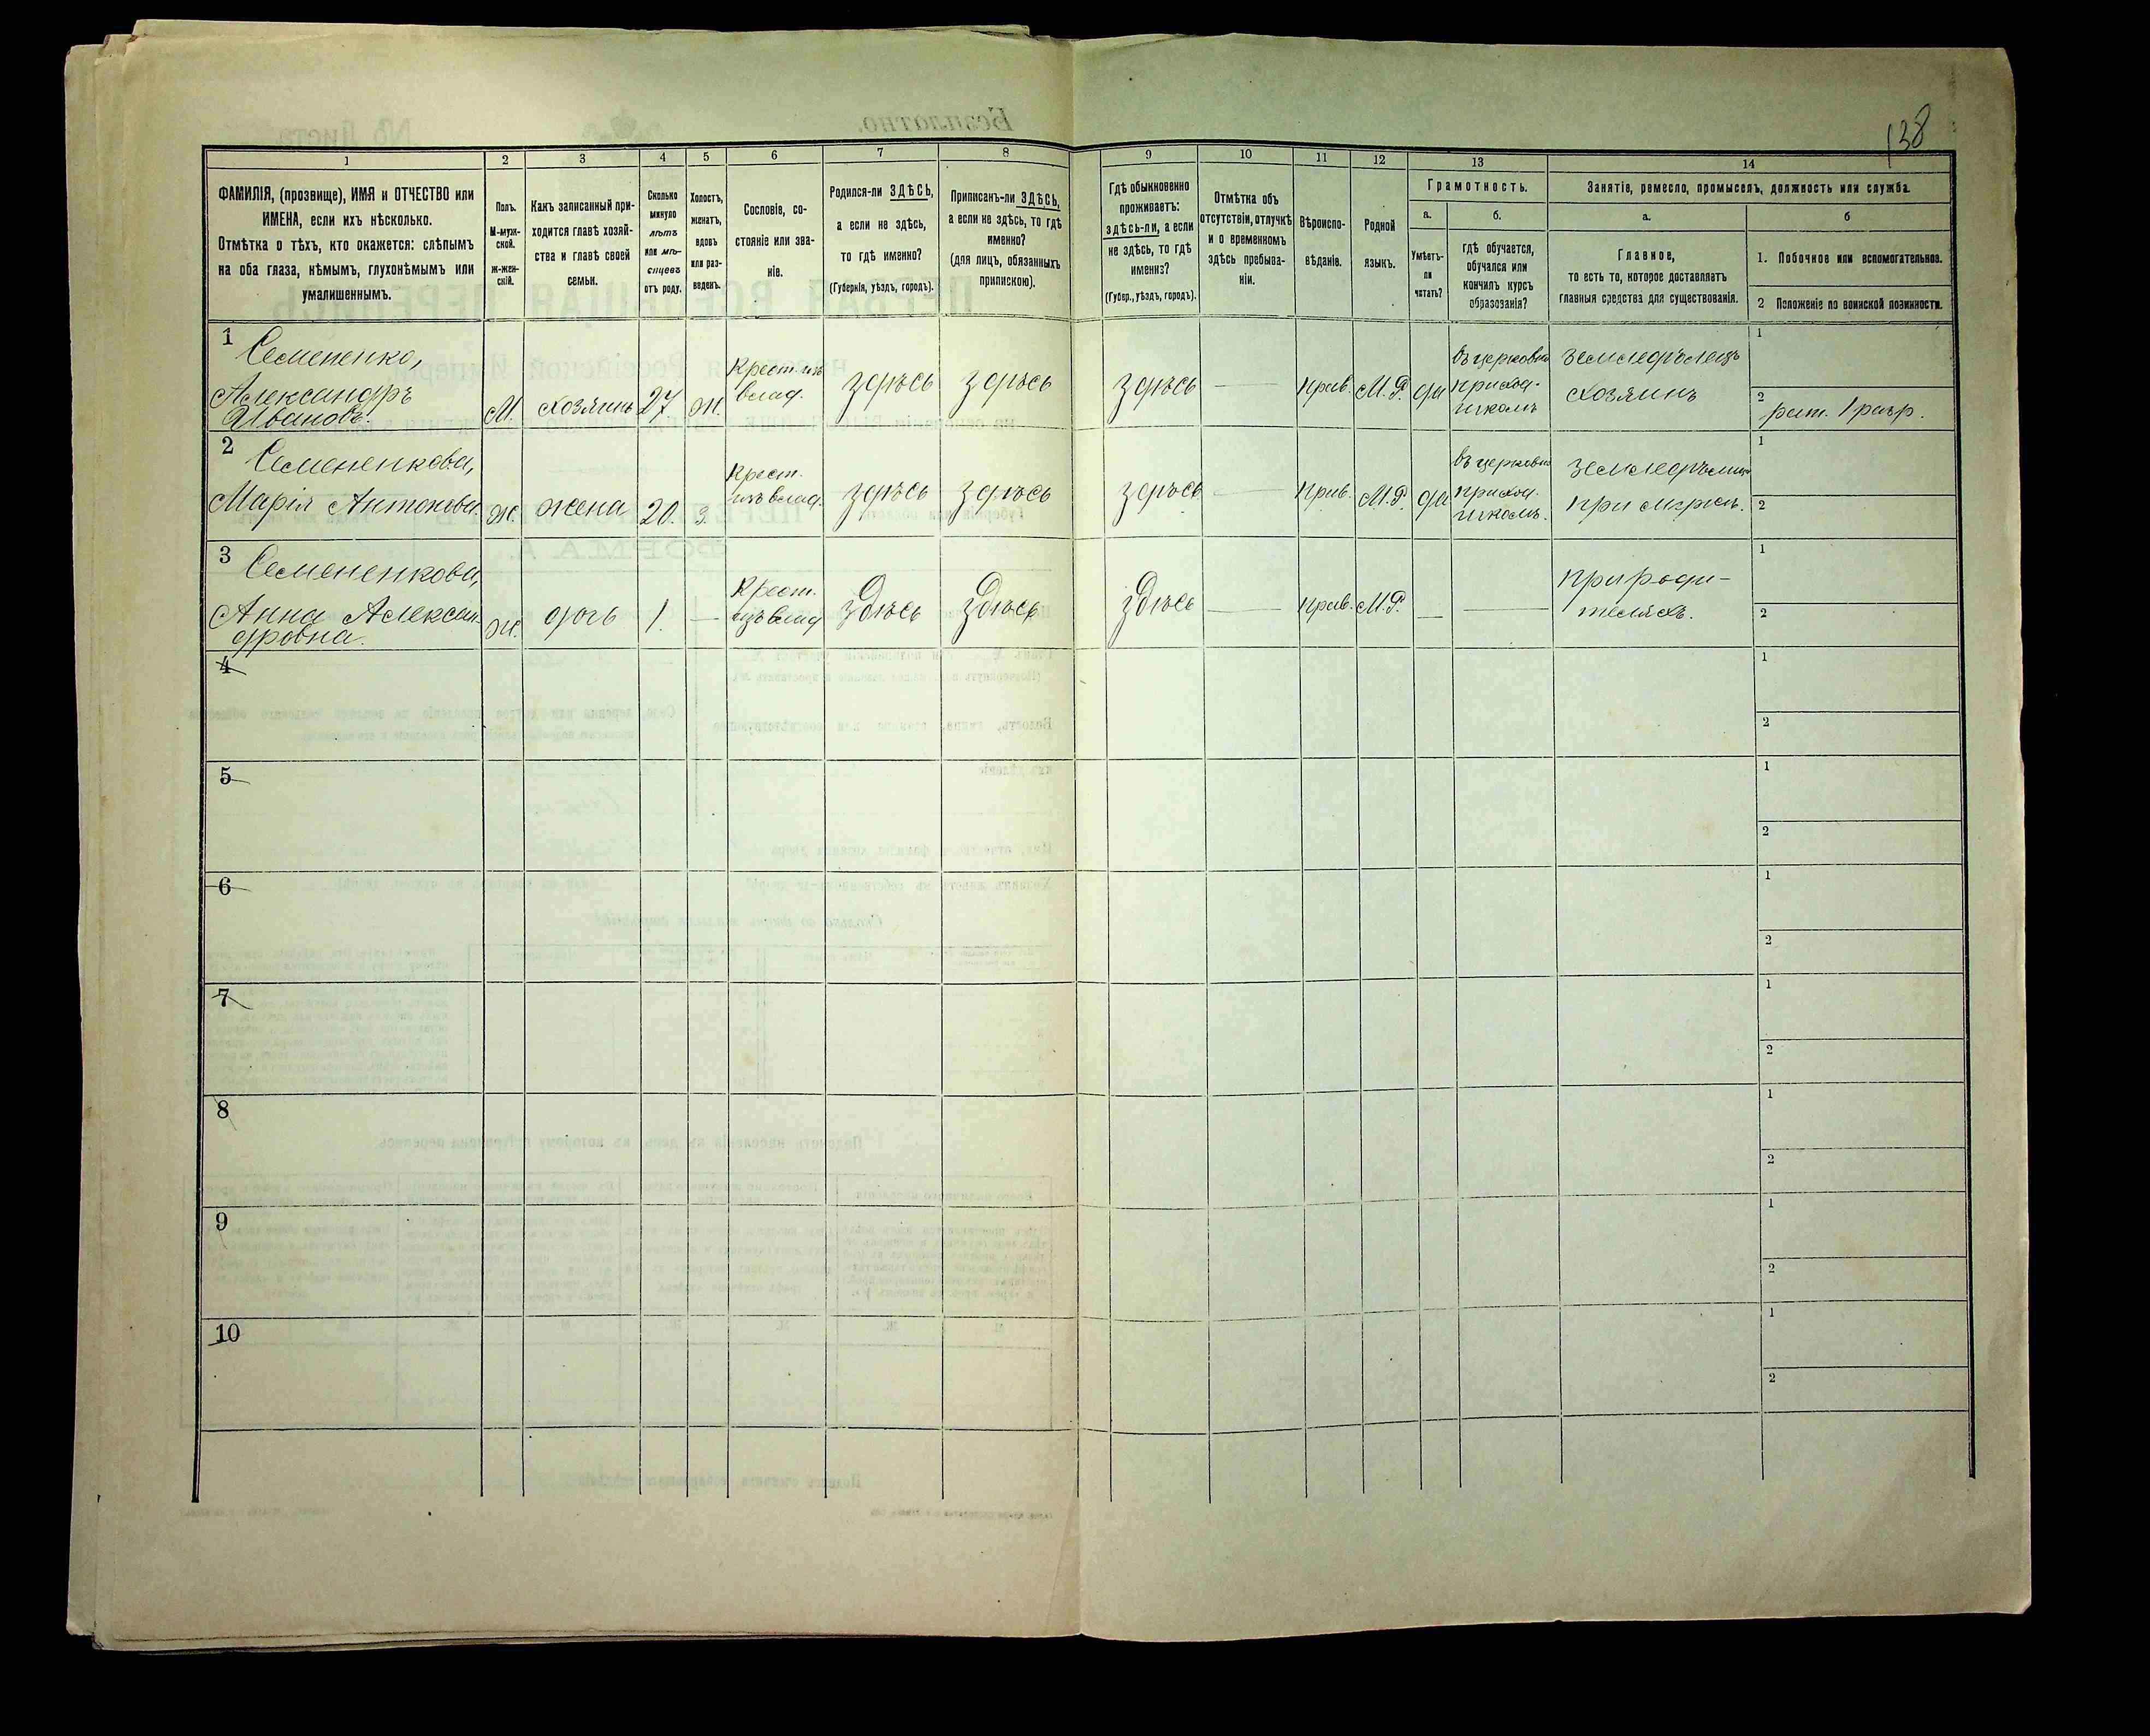 138
1
2
3
4
5
6
7
8
9
10
11
12
13
14
ФАМИЛІЯ, (прозвище), ИМЯ и ОТЧЕСТВО или
ИМЕНА, если ихъ нѣсколько.
Отмѣтка о тѣхъ, кто окажется: слѣпымъ
на оба глаза, нѣмымъ, глухонѣмымъ или
умалишеннымъ.
Полъ.
М-муж-
ской.
ж-жен-
скій.
Какъ записанный при-
ходится главѣ хозяй-
ства и главѣ своей
семьи.
Сколько
минуло
лѣтъ
или мѣ-
сяцевъ
отъ роду.
Холостъ,
женатъ,
вдовъ
или раз-
веденъ.
Сословіе, со-
стояніе или зва-
ніе.
Родился-ли ЗДѢСЬ,
а если не здѣсь,
то гдѣ именно?
(Губернія, уѣздъ, городъ).
Приписанъ-ли ЗДѢСЬ,
а если не здѣсь, то гдѣ
именно?
(для лицъ, обязанныхъ
припискою).
Гдѣ обыкновенно
проживаетъ:
здѣсь-ли, а если
не здѣсь, то гдѣ
именно?
(Губер., уѣздъ, городъ).
Отмѣтка объ
отсутствіи, отлучкѣ
и о временномъ
здѣсь пребыва-
ніи.
Вѣроиспо-
вѣданіе.
Родной
языкъ.
Грамотность.
а.
Умѣетъ-
ли
читать?
б.
гдѣ обучается,
обучался или
кончилъ курсъ
образованія?
Занятіе, ремесло, промыселъ, должность или служба.
а.
Главное,
то есть то, которое доставляетъ
главныя средства для существованія.
б
1. Побочное или вспомогательное.
2 Положеніе по воинской повинности.
1 Семененко,
Александръ
Ивановъ.
М.
хозяинъ
27
ж.
Крест. изъ
влад.
здѣсь
здѣсь
здѣсь
—
Прав.
М.Р.
да
въ церковно
приход.
школѣ
земледѣлецъ
хозяинъ
1
2
рат. 1 разр.
2 Семененкова,
Марія Антонова.
ж.
жена
20.
З.
Крест.
изъ влад.
здѣсь
здѣсь
здѣсь
—
Прав.
М.Р.
да
въ церковно
приход.
школѣ.
при мужѣ.
1
2
3 Семененкова,
Анна Алексан-
дровна.
ж.
дочь
1.
—
Крест.
изъ влад
здѣсь
здѣсь
здѣсь
—
Прав.
М.Р.
—
—
при роди-
теляхъ.
1
2
4
1
2
5
1
2
6
1
2
7
1
2
8
1
2
9
1
2
10
1
2